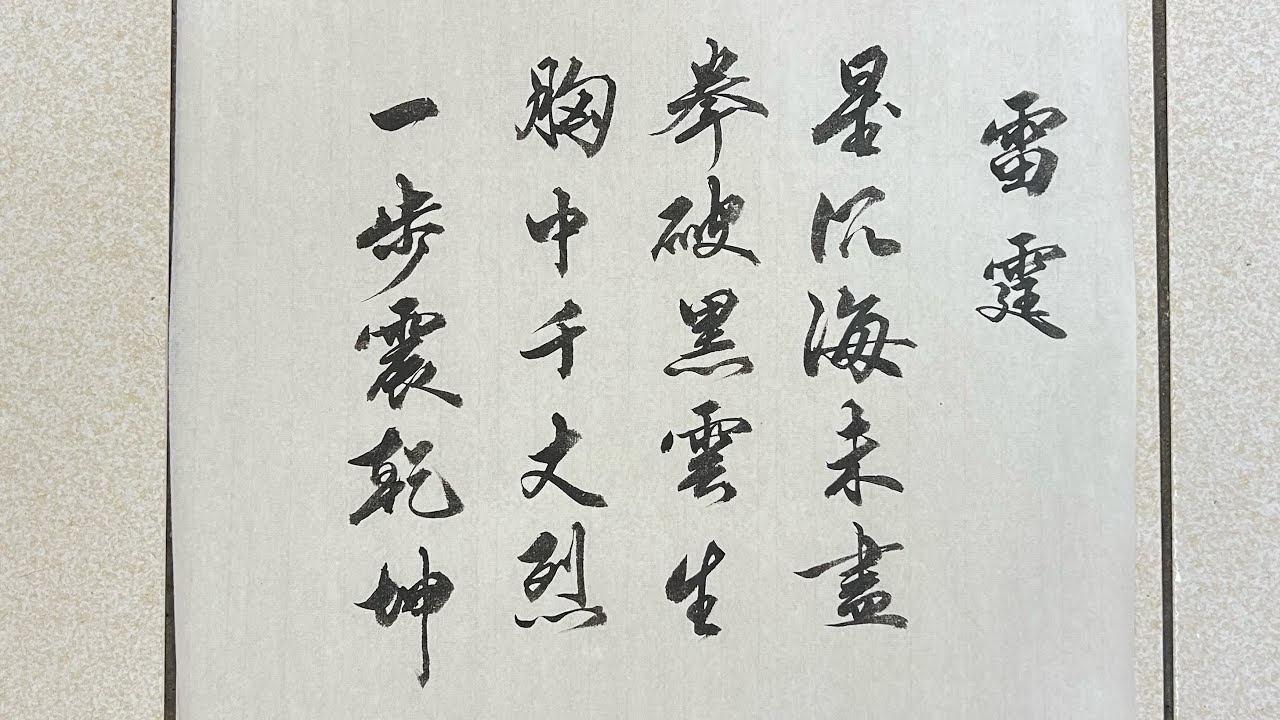 雷霆
星沉海未盡
拳破黑雲生
胸中千丈烈
一步震乾坤